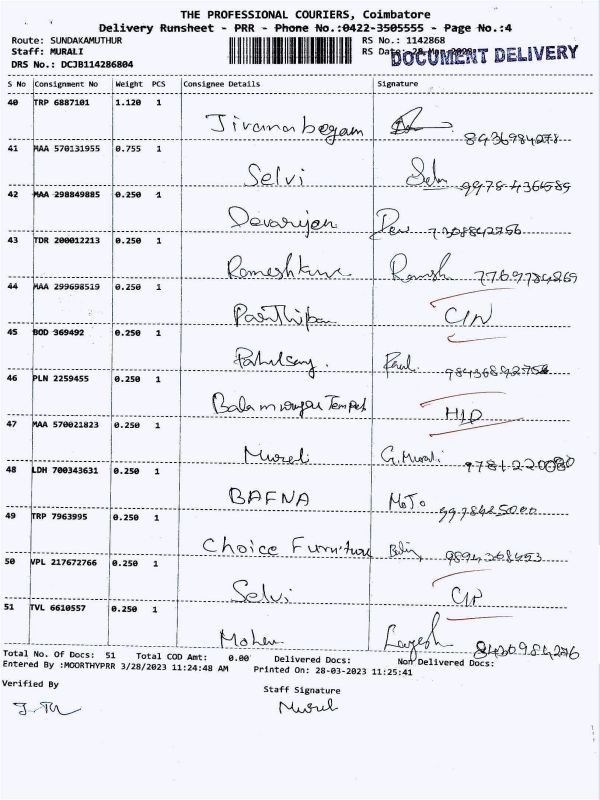 THE PROFESSIONAL COURIERS, Coimbatore
Delivery Runsheet - PRR - Phone No.:0422-3505555 - Page No.:4
Route: SUNDAKAMUTHUR RS No.: 1142868
Staff: MURALI RS Date: 28-Mar-2023 DOCUMENT DELIVERY
DRS No.: DCJB114286804
S No Consignment No Weight PCS Consignee Details Signature
40 TRP 6887101 1.120 1
Jivanarbegam 8936984278
41 MAA 570131955 0.755 1
Selvi Selvi 99784364589
42 MAA 298849885 0.250 1
Devarijan Dev 7308842756
43 TDR 200012213 0.250 1
Rameshkumar Ramesh 7769784269
44 MAA 299698519 0.250 1
Parthipan C/N
45 BOD 369492 0.250 1
Paul 9843689275
46 PLN 2259455 0.250 1
Balamurugan Tempel H/D
47 MAA 570021823 0.250 1
Murali G.Murali
48 LDH 700343631 0.250 1
BAFNA MoTo 9978425000
49 TRP 7963995 0.250 1
Choice Furniture 9894368453
50 VPL 217672766 0.250 1
Selvi C/N
51 TVL 6610557 0.250 1
Mohan 8430984276
Total No. Of Docs: 51 Total COD Amt: 0.00 Delivered Docs: Non Delivered Docs:
Entered By :MOORTHYPRR 3/28/2023 11:24:48 AM Printed On: 28-03-2023 11:25:41
Verified By Staff Signature
Murali